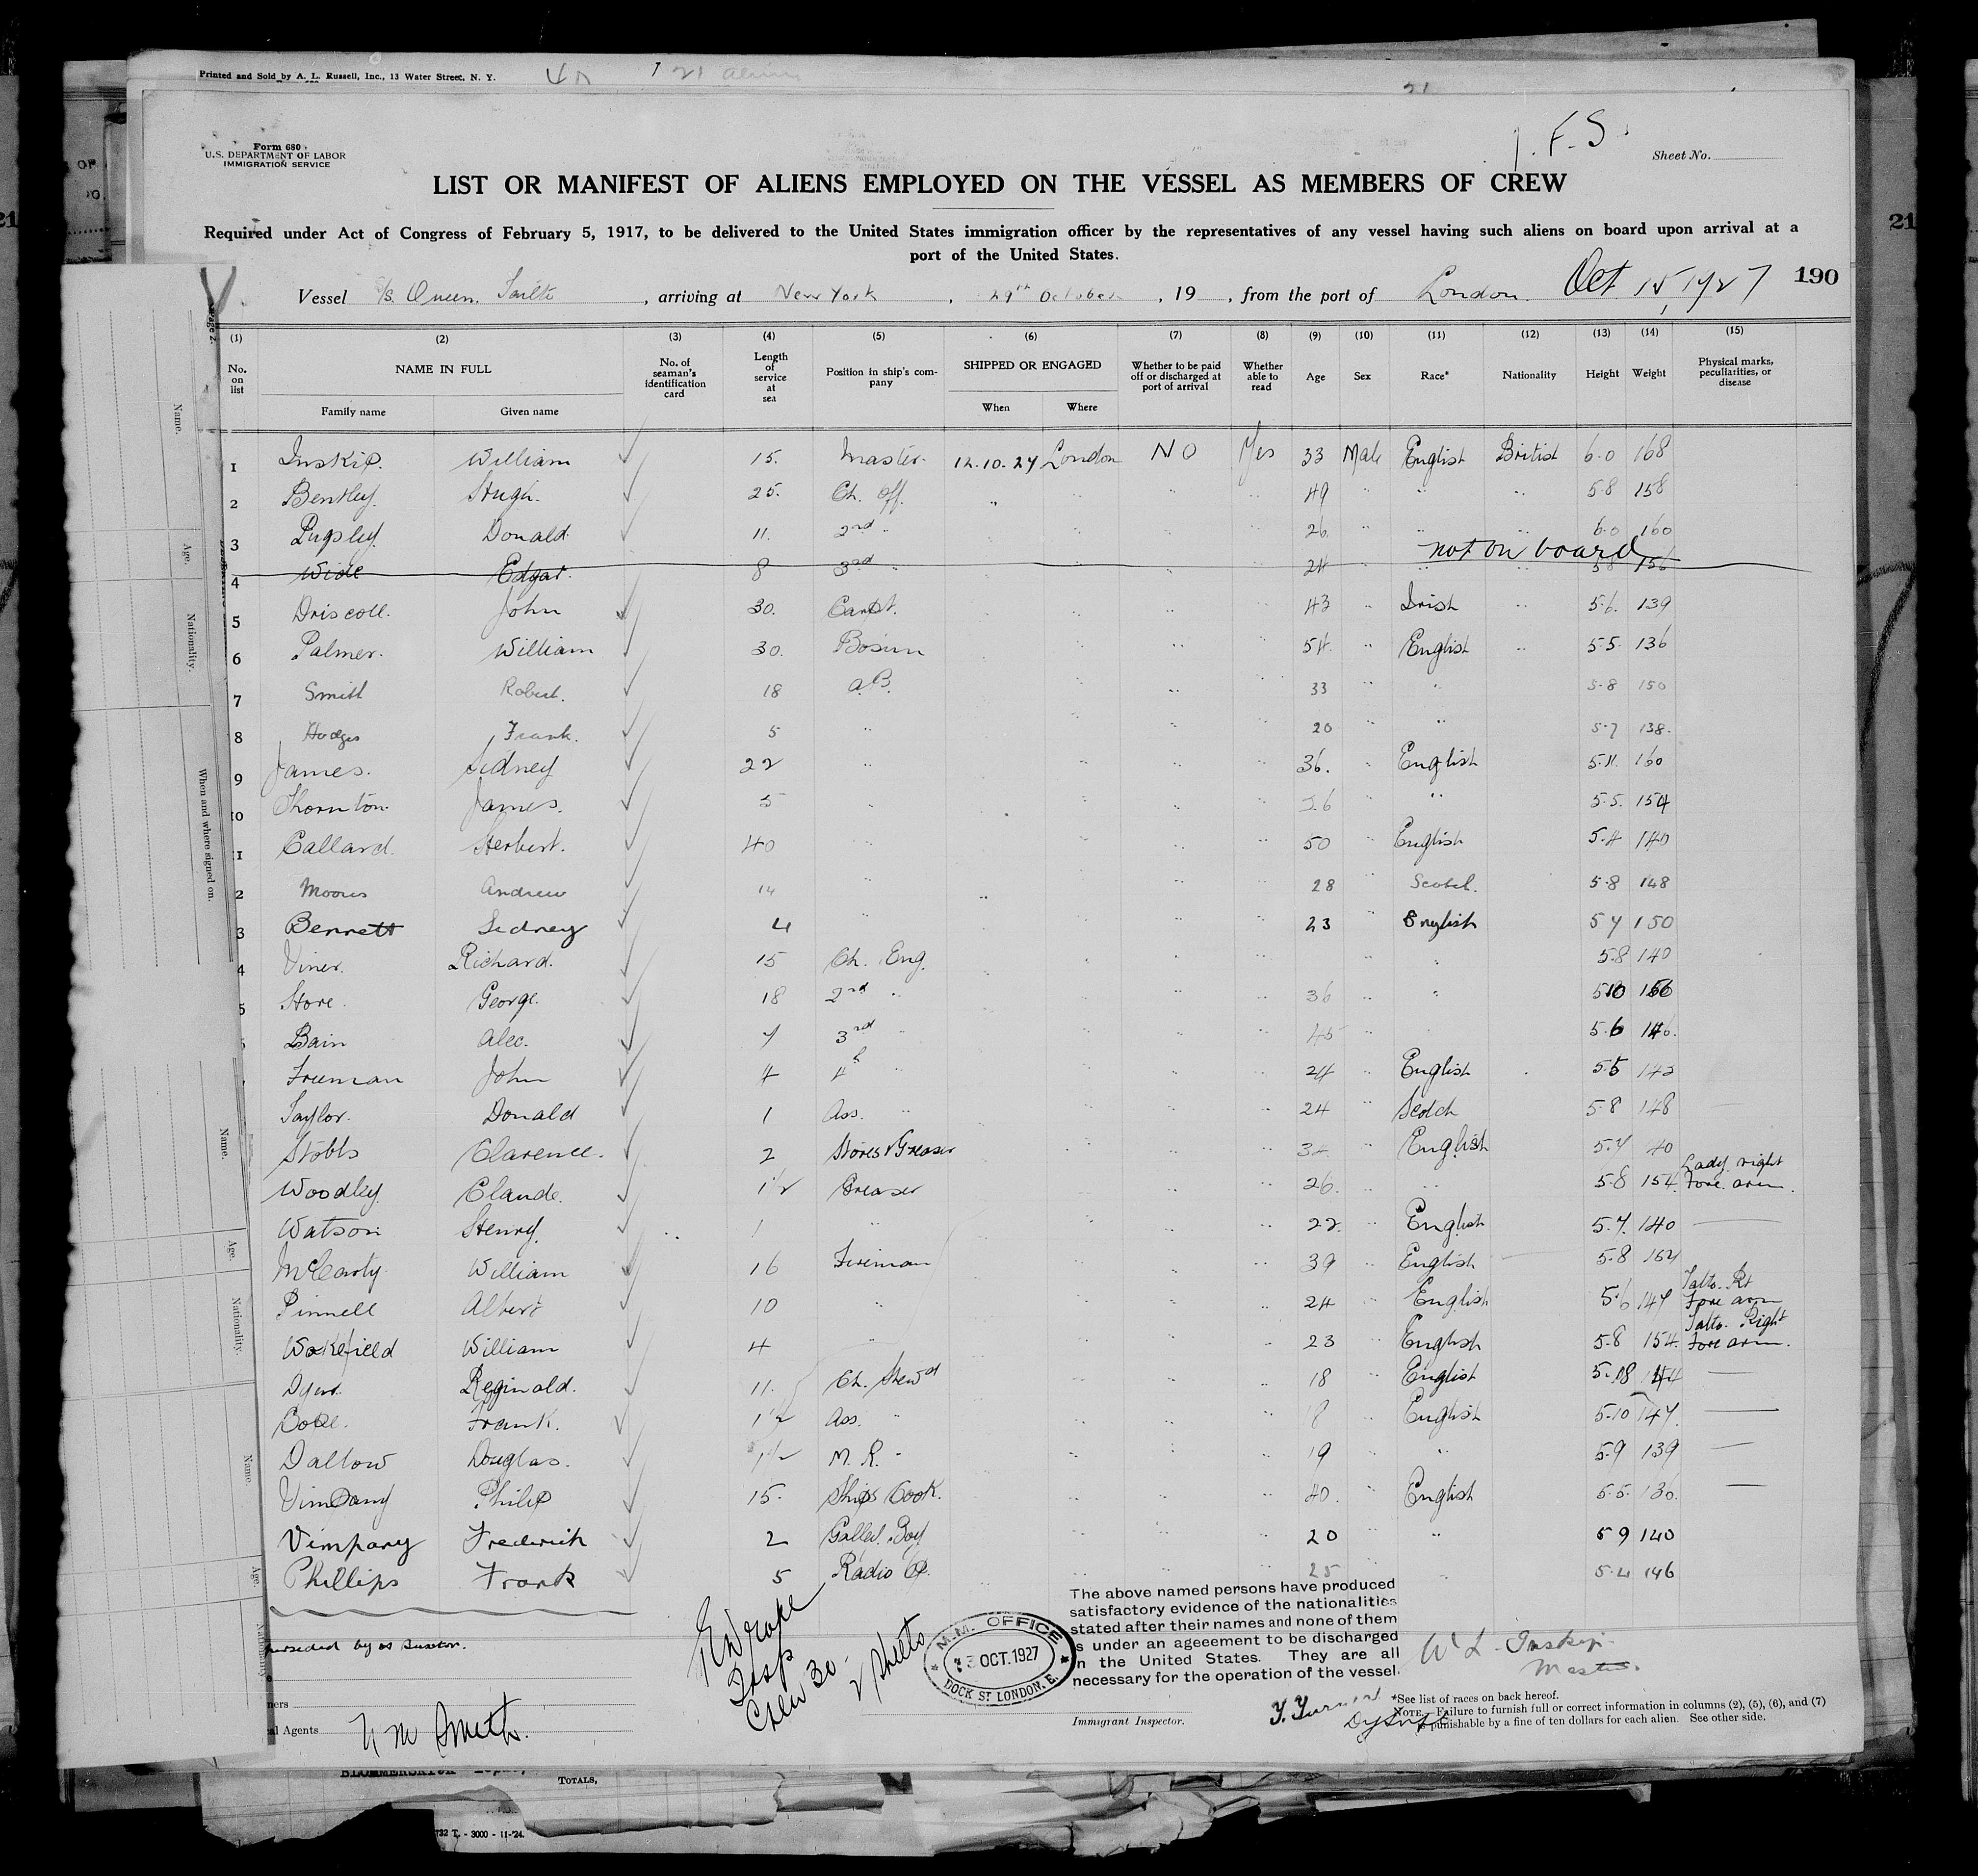 Printed and Sold by A. L. Russell, Inc., 13 Water Street, N. Y.
21 aliens
21
Form 680
U.S. DEPARTMENT OF LABOR
IMMIGRATION SERVICE
Sheet No.
LIST OR MANIFEST OF ALIENS EMPLOYED ON THE VESSEL AS MEMBERS OF CREW
Required under Act of Congress of February 5, 1917, to be delivered to the United States immigration officer by the representatives of any vessel having such aliens on board upon arrival at a
port of the United States.
Vessel S/S. Queen , arriving at New York , 29th October , 19 , from the port of London. Oct 15, 1927 190
(1) (2) (3) (4) (5) (6) (7) (8) (9) (10) (11) (12) (13) (14) (15)
No. on list NAME IN FULL Family name Given name No. of seaman's identification card Length of service at sea Position in ship's company SHIPPED OR ENGAGED When Where Whether to be paid off or discharged at port of arrival Whether able to read Age Sex Race* Nationality Height Weight Physical marks, peculiarities, or disease
1 Inskip. William 15. Master. 12.10.27 London NO Yes 33 Male English British 6.0 168
2 Bentley. Hugh. 25. Ch. Off. " " " " 49 " " " 5.8 158
3 Pugsley. Donald. 11. 2nd " " " " 26. " " " 6.0 160
not on board
4 Wide Edgar. 8 3rd " " " " 24 " " " 5.8 156
5 Driscoll. John 30. Carpt. " " " 43 " Irish " 5.6. 139
6 Palmer. William 30. Bosun " " " 54. " English " 5.5. 136
7 Smith Robert. 18 A.B. " " " 33 " " 5.8 150
8 Hodges Frank. 5 " " " " 20 " " 5.7 138.
9 James. Sidney 22 " " " " 36. " English 5.11. 160
10 Thornton. James. 5 " " " " " " 5.5. 154
1 Callard. Herbert. 40 " " " " 50 " English 5.4 140
2 Moores Andrew 14 " " " " " 28 " Scotch. 5.8 148
3 Bennett Sidney 4 " " " " 23 " English 5 7 150
4 Viner. Richard. 15 Ch. Eng. " " " " " 5.8 140
5 Store. George. 18 2nd " " " " 36 " " 5.10
Bain Alec. 7 3rd " " " " 45 " " 5.6 146.
Freeman John 4 4th " " " " 24 " English 5.5
Taylor. Donald 1 Ass. " " " " 24 " Scotch 5.8 148 —
Stobbs Clarence. 2 Stores & Greaser " " " 34 " English 5.7 40
Woodley. Claude. 1½ Greaser " " " 26. " " 5.8 154. Lady. right Fore. arm.
Watson Henry. 1 " " " " 22. " English 5.7. 140 —
McCarty. William 16 Fireman " " " 39 " English 5.8 154
Pinnell Albert 10 " " " " 24 " English 5.6 147 Tatto. Rt Fore arm
Wakefield William 4 " " " " 23 " English 5.8 154. Tatto. Right Fore arm.
Dyer. Reginald. 11. Ch. Stewd " " " 18 " English 144 —
Frank. 1½ Ass. " " " " " English 5.10 147. —
Dallow Douglas. 1½ M. R. " " " " 19 " " 5.9 139 —
Vimpany Philip 15. Ships Cook. " " " 40. " English 5.5. 136. —
Vimpany Frederick 2 Galley Boy. " " " 20 " " 5 9 140
Phillips Frank 5 Radio Op. " " " 25 " " 5.4 146
Insp
Crew 30
2 sheets
M.M. OFFICE
13 OCT. 1927
DOCK ST LONDON, E.
The above named persons have produced
satisfactory evidence of the nationalities
stated after their names and none of them
s under an ageeement to be discharged
n the United States. They are all
necessary for the operation of the vessel.
W L. Inskip.
Master.
Immigrant Inspector.
*See list of races on back hereof.
NOTE.—Failure to furnish full or correct information in columns (2), (5), (6), and (7)
punishable by a fine of ten dollars for each alien. See other side.
ners
al Agents
Smith.
Name.
Age.
Nationality.
When and where signed on.
Name.
Age.
Nationality.
Name.
Age.
Nationality
TOTALS,
732 T. - 3000 - 11-'24.
21
21